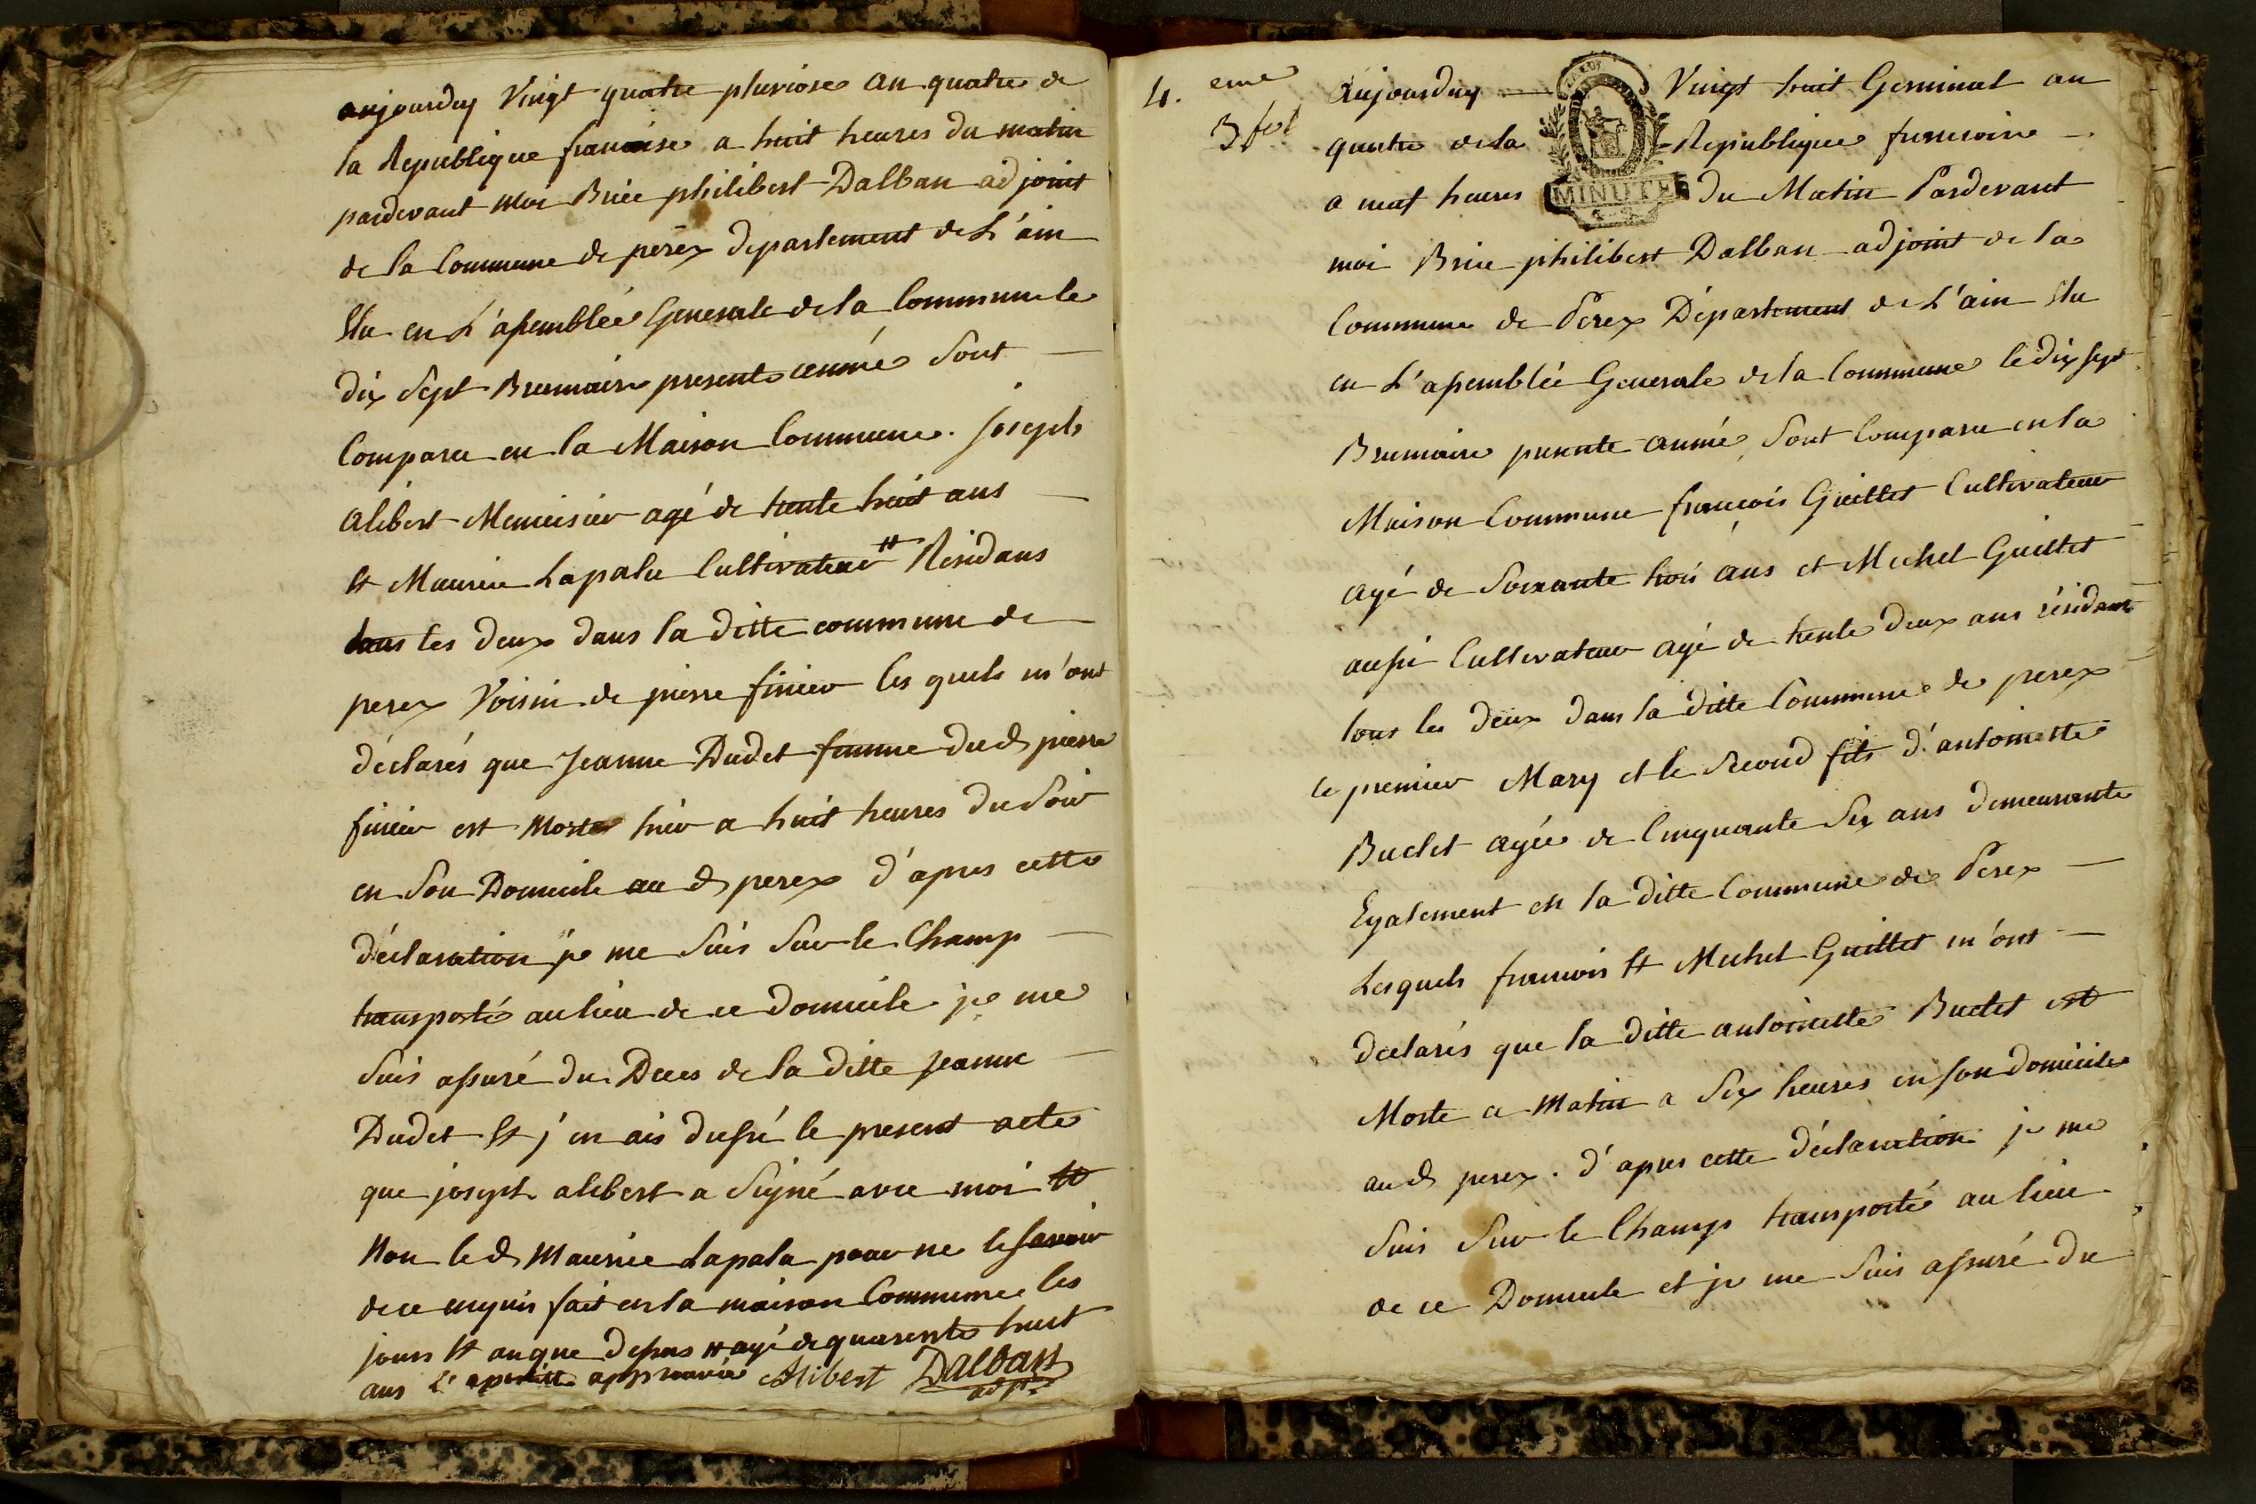 aujourduy Vingt quatre pluviose an quatre de
la Republique francoise a huit heures du matin
pardevant moi Brice philibert Dalban adjoint
de la Commune de perex departement de L'ain
Elu en L'assemblée Generale de la Commune le
dix Sept Brumaire presente année Sont
Comparu en la Maison Commune. joseph
alibert Menuisier agé de trente huit ans
Et Maurice Lapalu Cultivateur # Residans
tous les deux dans la ditte commune de
perex Voisin de pierre finier les quels m'ont
déclarés que Jeanne Dudet femme dud pierre
finier est Morte hier a huit heures du Soir
en Son Domicile au d perex d'apres cette
déclaration je me Suis Sur le Champ
transporté au lieu de ce domicile je me
Suis assuré du Deces de la ditte jeanne
Dudet Et j'en ais dressé le present acte
que joseph alibert a Signé avec moi Et
Non le d Maurice Lapalu pour ne le savoir
de ce enquis fait en la maison Commune les
jours Et an que dessus # agé de quarente huit
ans L' apostille approuvée Alibert Dalban
adjt
4. eme
3 fet
Aujourduy Vingt huit Germinal an
quatre de la Republique francoise
a neuf heures MINUTE du Matin Pardevant
moi Brice philibert Dalban adjoint de la
Commune de Perex Département de L'ain Elu
en L'assemblée Generale de la Commune le dix sept
Brumaire presente année, Sont Comparu en la
Maison Commune francois Guillet Cultivateur
agé de Soixante trois ans et Michel Guillet
aussi Cultivateur agé de trente deux ans résidant
tous les deux dans la ditte Commune de perex
le premier Mary et le Second fils d'antoinette
Buclet agée de Cinquante Six ans demeurante
Egalement en la ditte Commune de Perex
Lesquels francois Et Michel Guillet m'ont
declarés que la ditte antoinette Buclet est
Morte ce matin a Six heures en son domicile
au d perex. d'apres cette déclaration je me
Suis Sur le Champ transporté au lieu
de ce Domicile et je me Suis assuré du